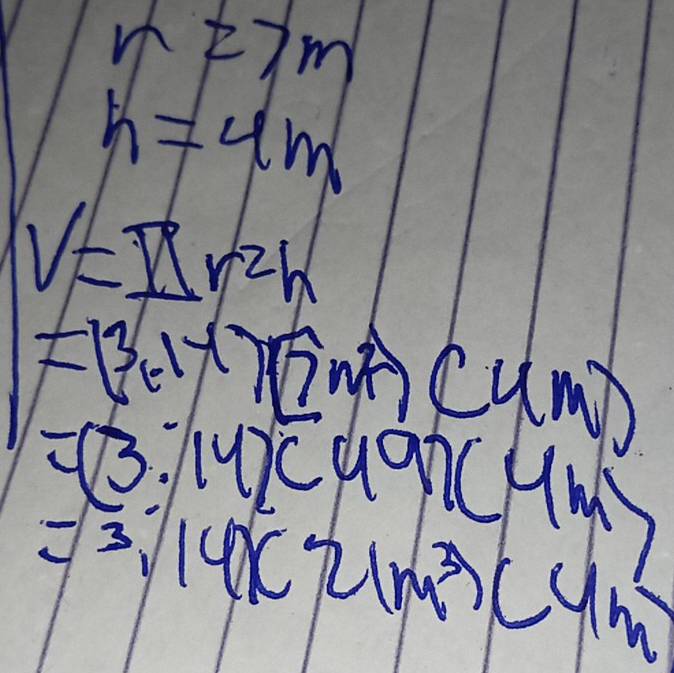 r = 7m
h = 4m
V = π r2h
= (3.14) (7m2) (4m)
= (3.14)(49)(4m)
= 3.14)(21m³)(4m)